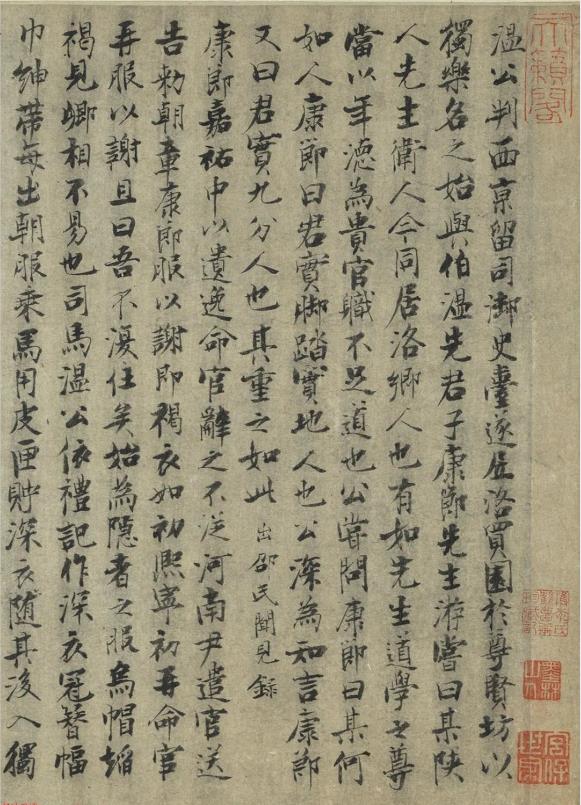 溫公判西京留司御史臺遂居洛買園於尊賢坊以
獨樂名之始與伯溫先君子康節先生游嘗曰某陝
人先生衛人今同居洛鄉人也有如先生道學之尊
當以年德為貴官職不足道也公嘗問康節曰某何
如人康節曰君實脚踏實地人也公深為知言康節
又曰君實九分人也其重之如此 出邵氏聞見錄
康節嘉祐中以遺逸命官辭之不從河南尹遣官送
告勅朝章康節服以謝即褐衣如初熙寧初再命官
再服以謝且曰吾不復仕矣始為隱者之服烏帽緇
褐見卿相不易也司馬溫公依禮記作深衣冠簪幅
巾紳帶每出朝服乘馬用皮匣貯深衣隨其後入獨
天籟閣
墨林山人
宮保世家